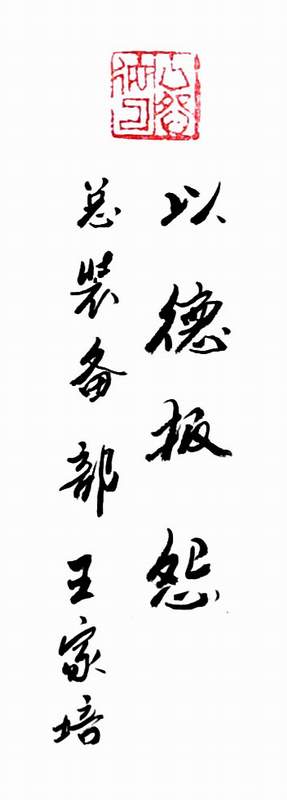 以德报怨
总装备部王家培